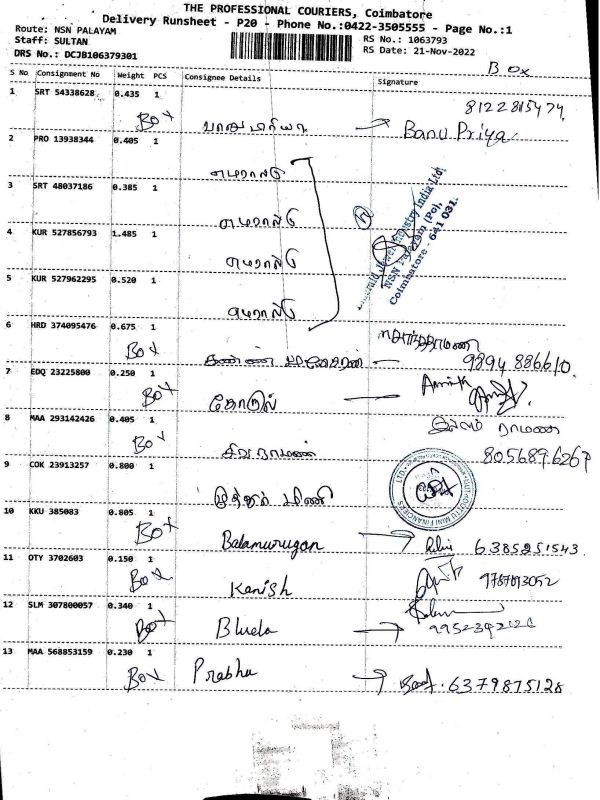 THE PROFESSIONAL COURIERS, Coimbatore
Delivery Runsheet - P20 - Phone No.:0422-3505555 - Page No.:1
Route: NSN PALAYAM
Staff: SULTAN
RS No.: 1063793
DRS No.: DCJB106379301
RS Date: 21-Nov-2022
Box
S No Consignment No Weight PCS Consignee Details Signature
1 SRT 54338628 0.435 1
Box பானுபிரியா Banu Priya
2 PRO 13938344 0.405 1
எமரால்டு
3 SRT 48037186 0.385 1
எமரால்டு
4 KUR 527856793 1.485 1
எமரால்டு
5 KUR 527962295 0.520 1
எமரால்டு
NSN Palayam (Po),
Coimbatore - 641 031.
6 HRD 374095476 0.675 1
Box 9894 886610.
7 EDQ 23225800 0.250 1
Box கோகுல்
8 MAA 293142426 0.405 1
Box சிவராமன்
9 COK 23913257 0.800 1
முத்தூட் மினி
10 KKU 385083 0.805 1
Box Balamurugan 6385251543
11 OTY 3702603 0.150 1
Box Kanish
12 SLM 307800057 0.340 1
Box
13 MAA 568853159 0.230 1
Box Prabhu 6379875128